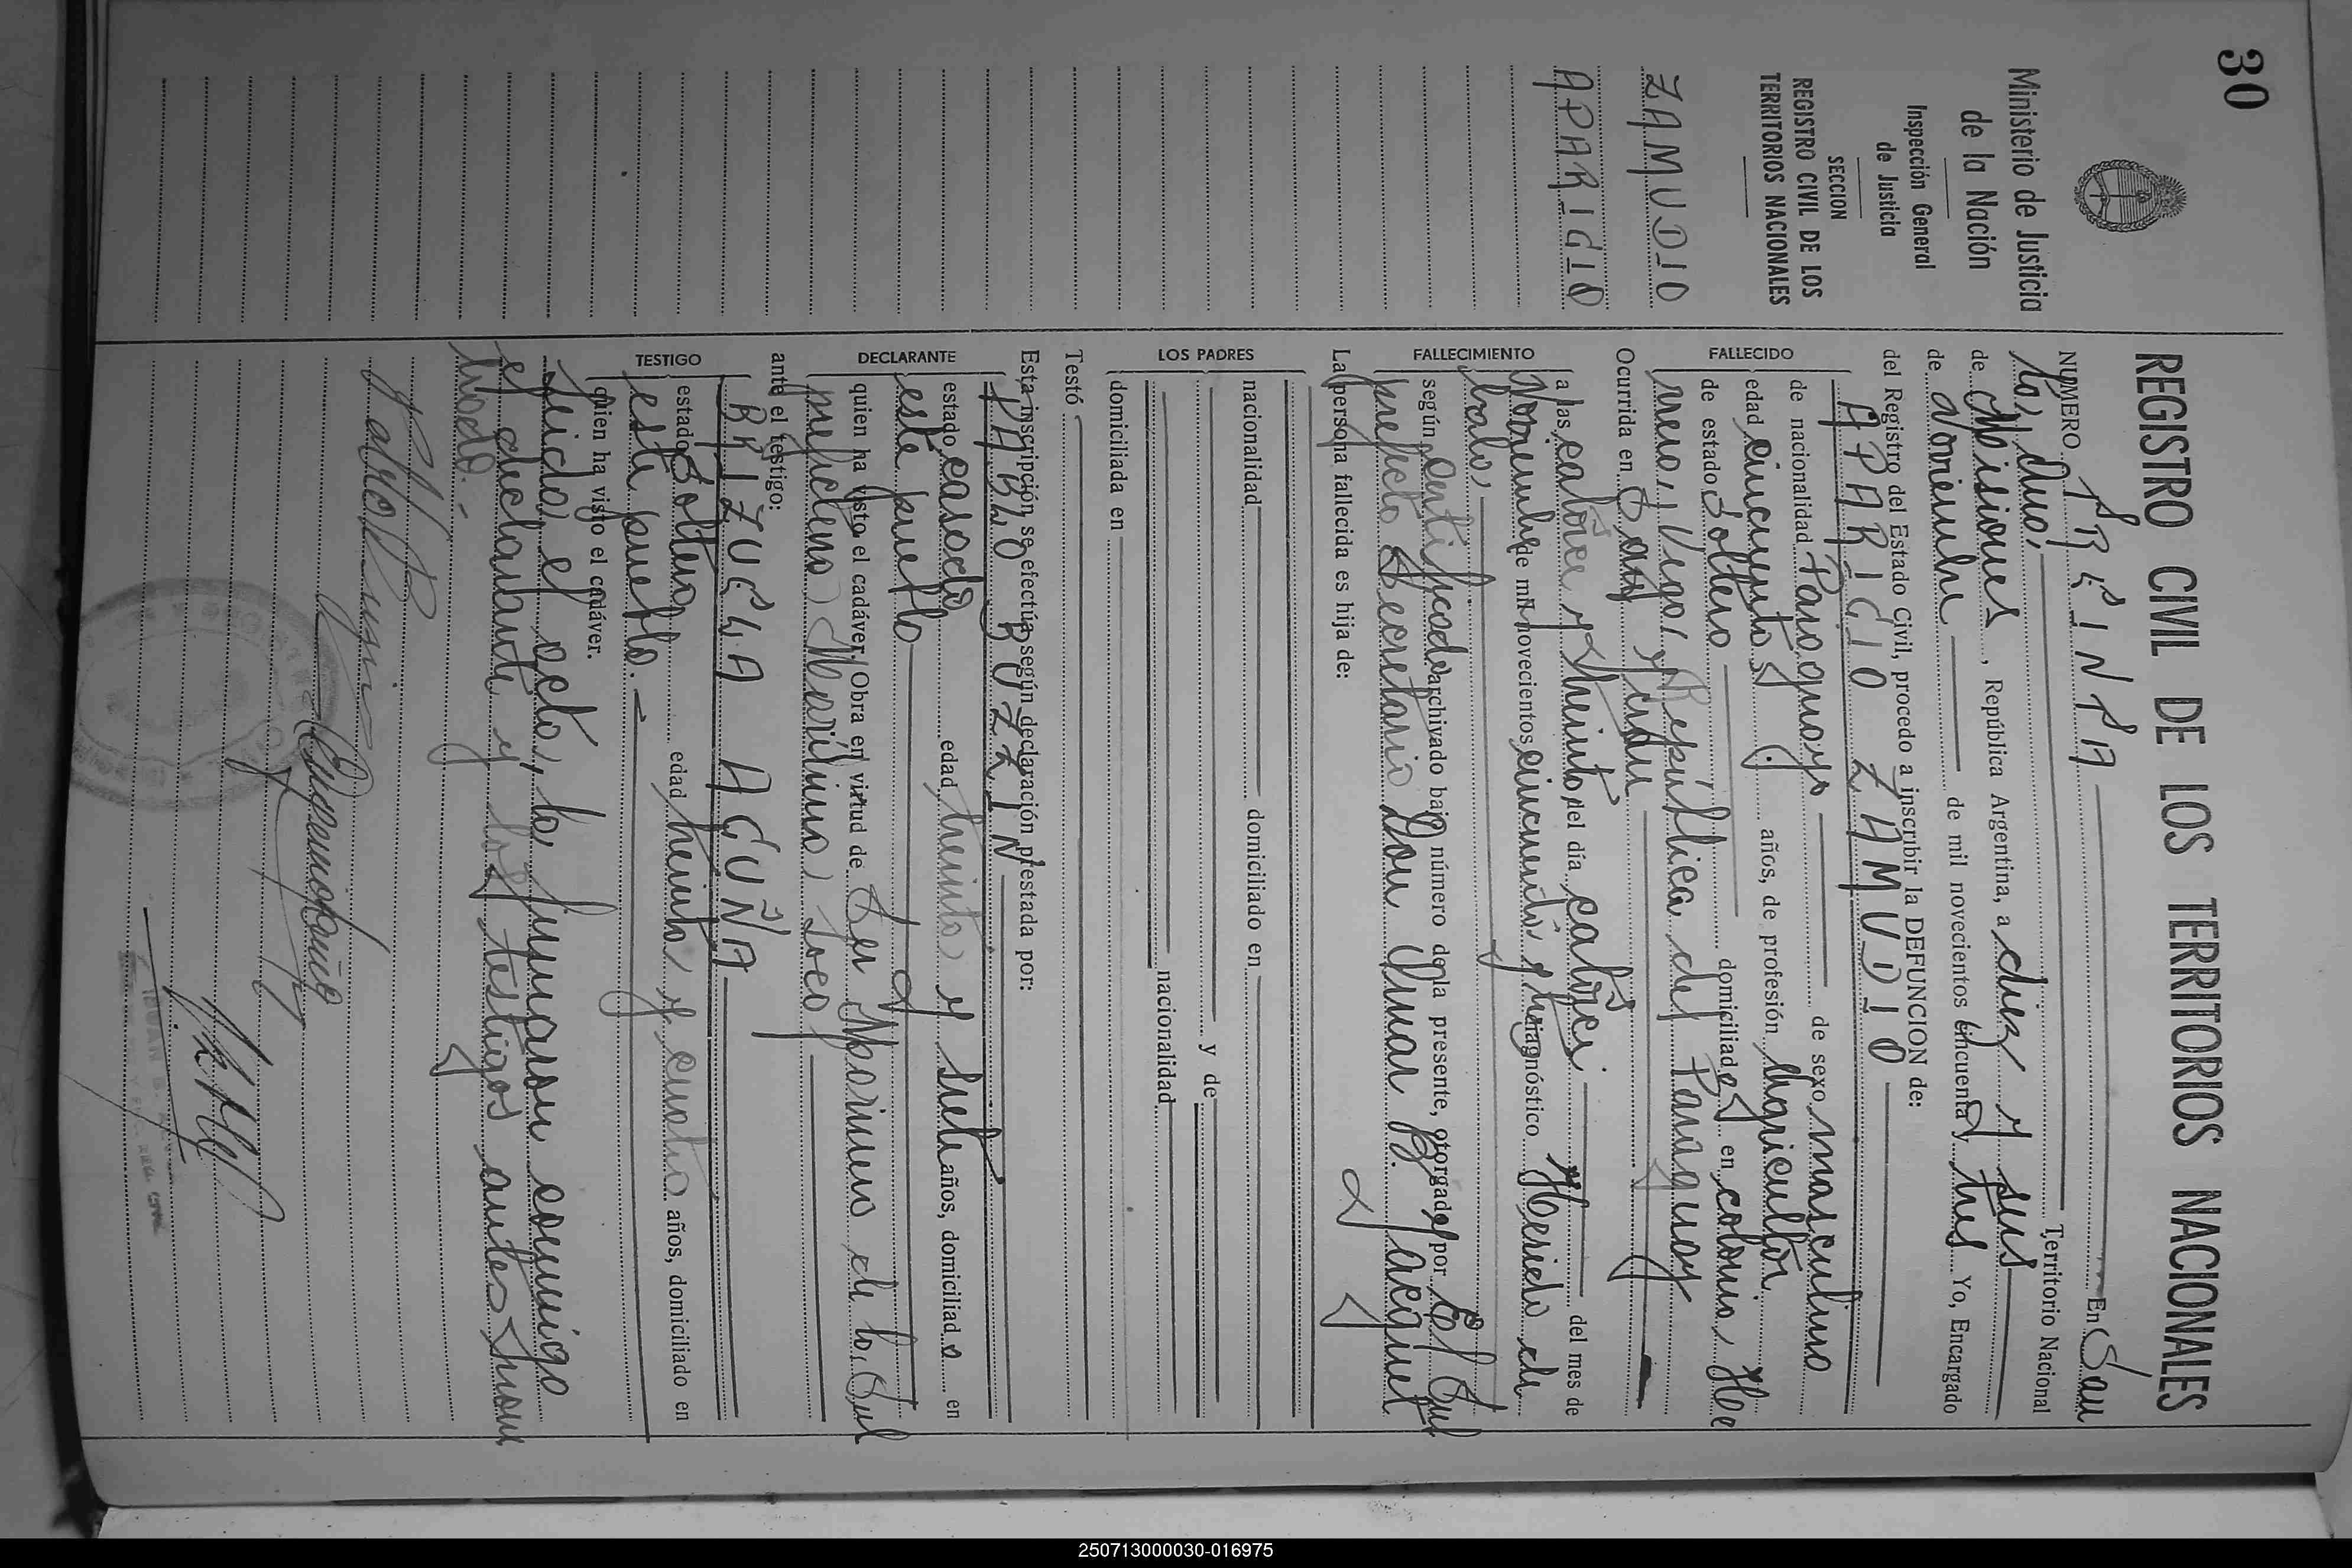 30
Ministerio de Justicia
de la Nación
Inspección General
de Justicia
SECCION
REGISTRO CIVIL DE LOS
TERRITORIOS NACIONALES
ZAMUDIO
APARICIO
REGISTRO CIVIL DE LOS TERRITORIOS NACIONALES
NUMERO TREINTA En San
ta Ana, Territorio Nacional
de Misiones, República Argentina, a diez y seis
de noviembre de mil novecientos cincuenta y tres Yo, Encargado
del Registro del Estado Civil, procedo a inscribir la DEFUNCION de:
FALLECIDO
APARICIO ZAMUDIO
de nacionalidad Paraguaya de sexo masculino
edad cincuenta años, de profesión Agricultor
de estado soltero domiciliado en colonia
República del Paraguay
Ocurrida en
FALLECIMIENTO
a las catorce y treinta del día catorce del mes de
Noviembre de mil novecientos cincuenta y tres diagnóstico Herida de
bala,
según certificado archivado bajo número de la presente, otorgado por el Sub
prefecto Secretario Don Omar B. Jacquet
La persona fallecida es hija de:
LOS PADRES
nacionalidad domiciliado en
y de
nacionalidad
domiciliada en
Testó
Esta inscripción se efectúa según declaración prestada por:
DECLARANTE
PABLO BUZZIN
estado casado edad treinta y siete años, domiciliado en
este pueblo
quien ha visto el cadáver. Obra en virtud de Ser Marinero de la Sub
prefectura Marítima local
ante el testigo:
TESTIGO
BRIZUELA ACUÑA
estado soltero edad treinta y cuatro años, domiciliado en
este pueblo.
quien ha visto el cadáver.
Leida el acta, la firmaron conmigo
el declarante y los testigos antes
250713000030-016975